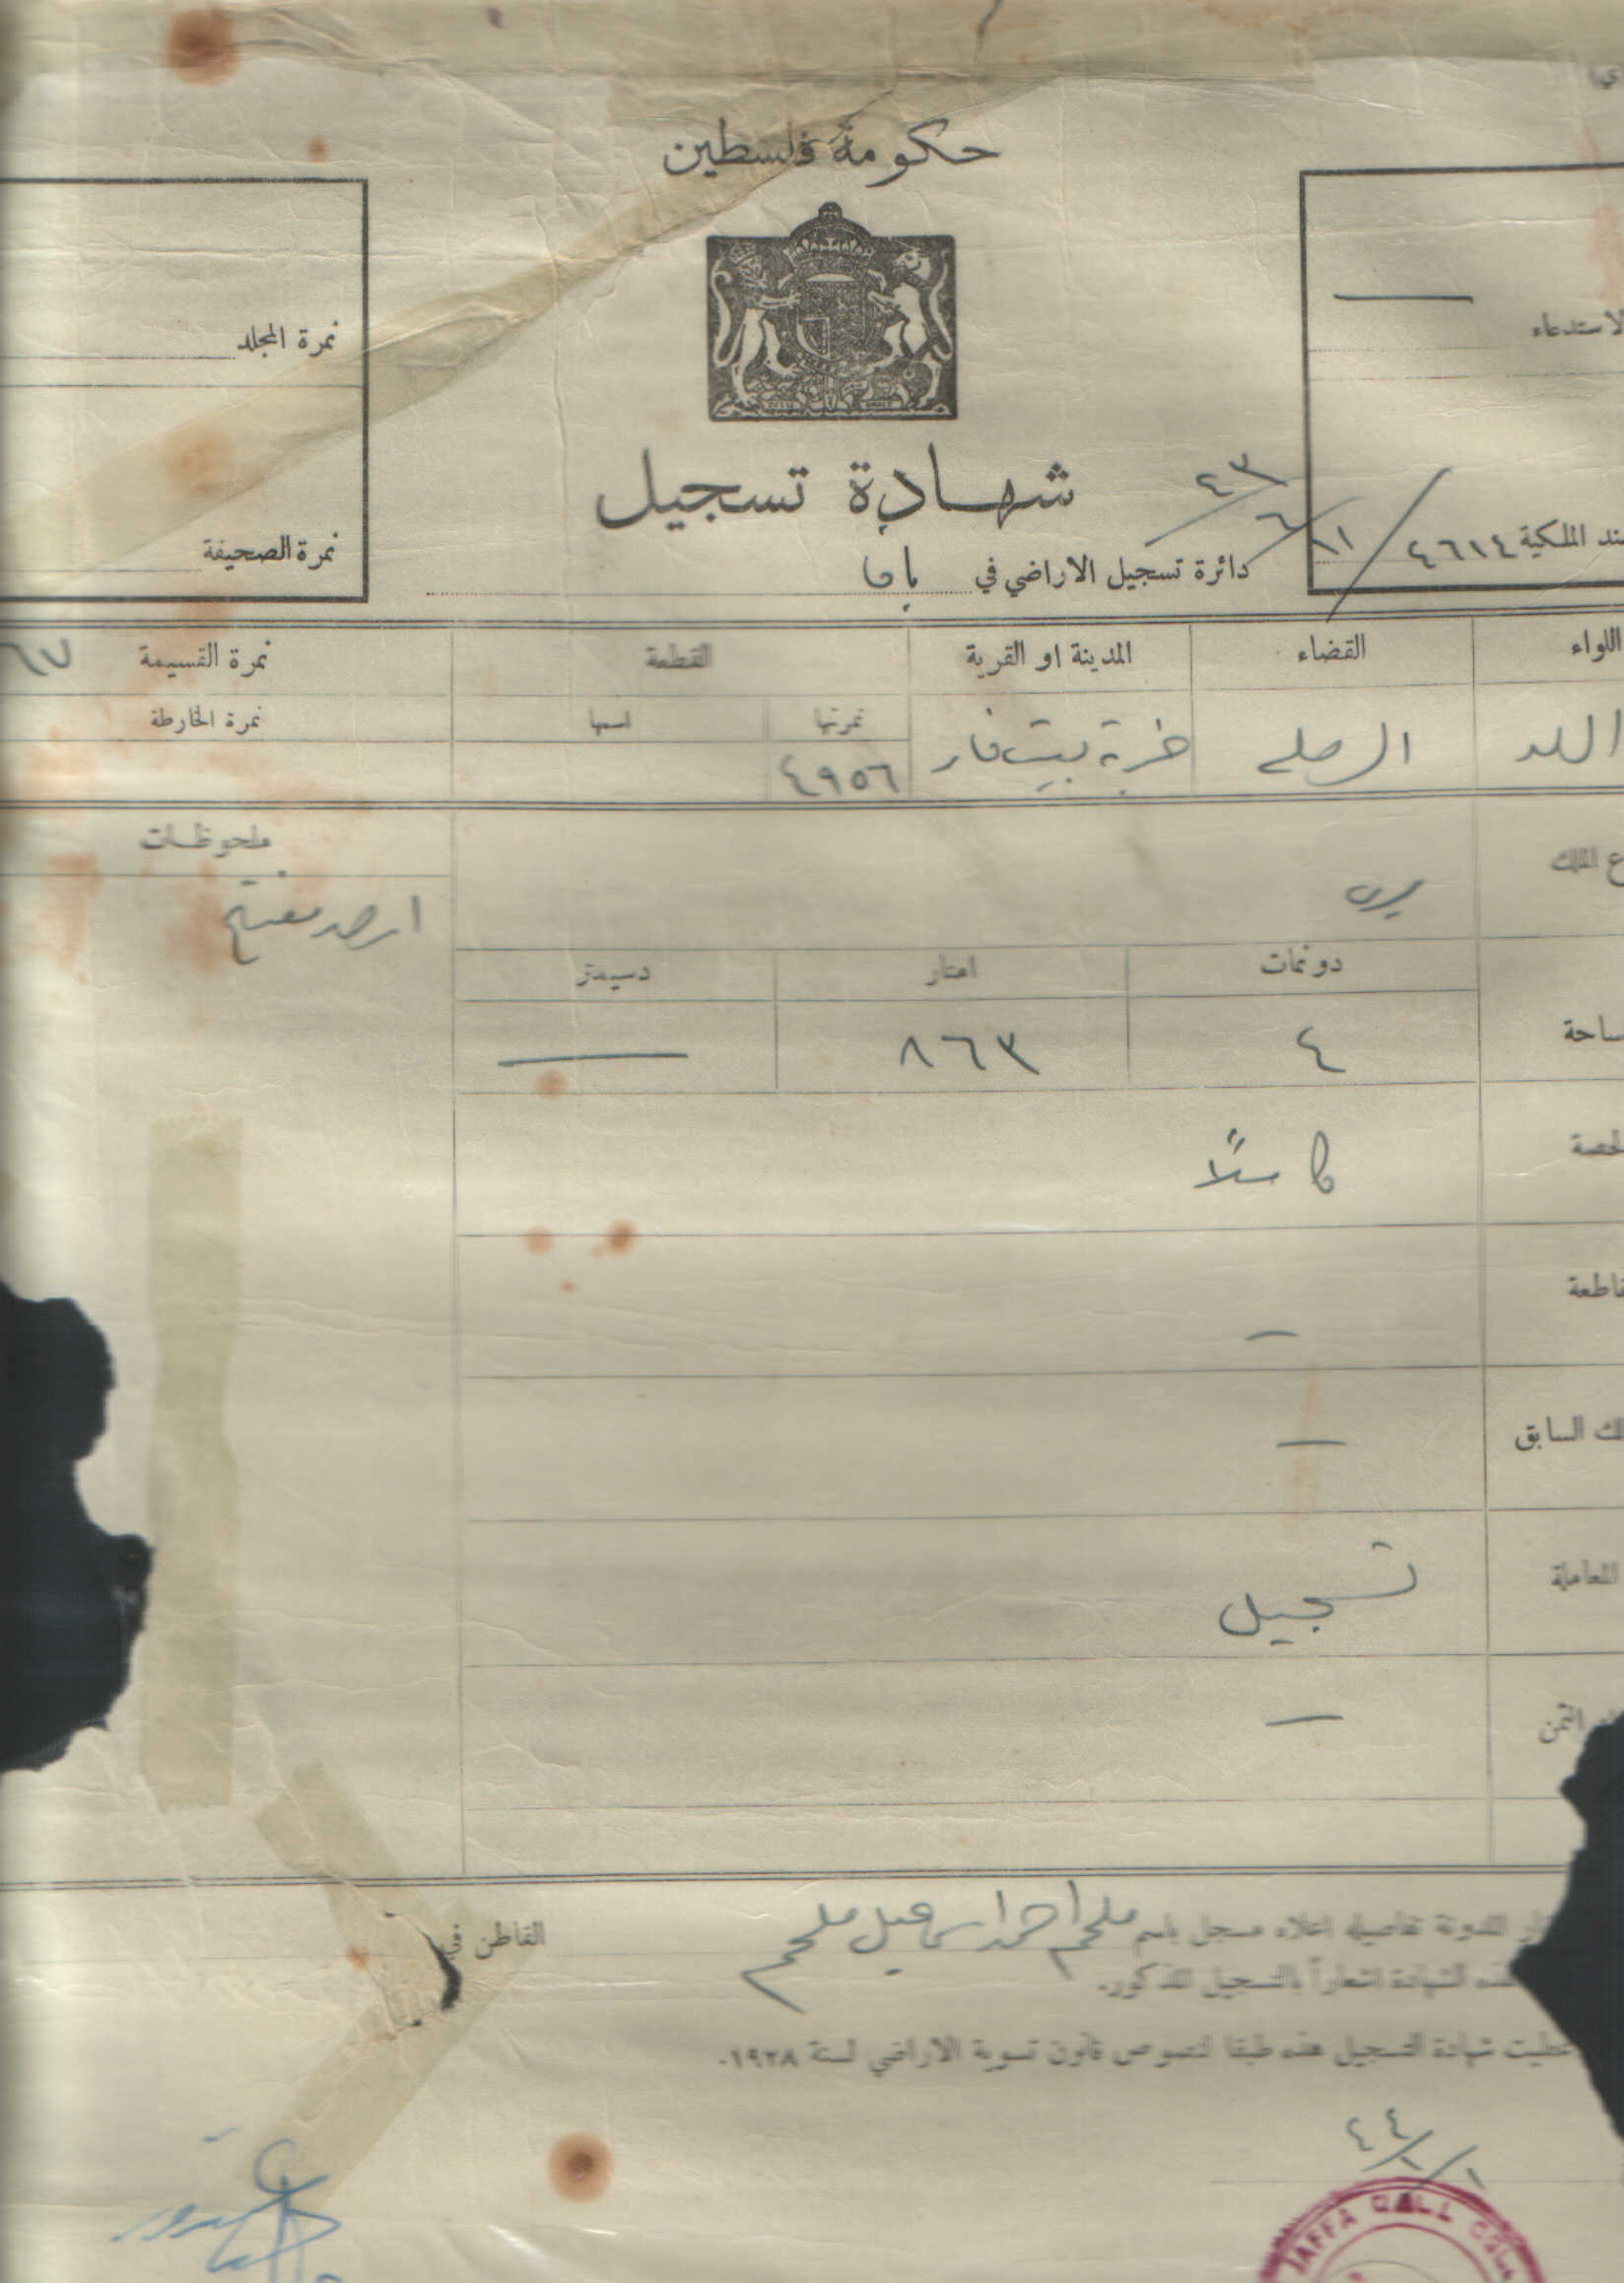 حكومة فلسطين
الاستدعاء
نمرة المجلد
شهادة تسجيل
سند الملكية ٤٦١٤ / ١١ / ٦ / ٤٣
نمرة الصحيفة
دائرة تسجيل الاراضي في يافا
اللواء القضاء المدينة او القرية القطعة نمرة القسيمة ٦٧
نمرتها اسمها نمرة الخارطة
اللد الرملة خربة بيت فار ٤٩٥٦
نوع الملك ميري
ملحوظات
ارض مفتلح
دونمات امتار دسيمتر
مساحة ٤ ٨٦٣ —
الحصة كاملاً
قاطعة —
المالك السابق —
المعاملة تسجيل
الثمن —
المدونة تفاصيله اعلاه مسجل باسم ملحم احمد اسماعيل ملحم القاطن في
هذه الشهادة اشعاراً بالتسجيل المذكور.
اعطيت شهادة التسجيل هذه طبقا لنصوص قانون تسوية الاراضي لسنة ١٩٢٨.
٤٤
JAFFA